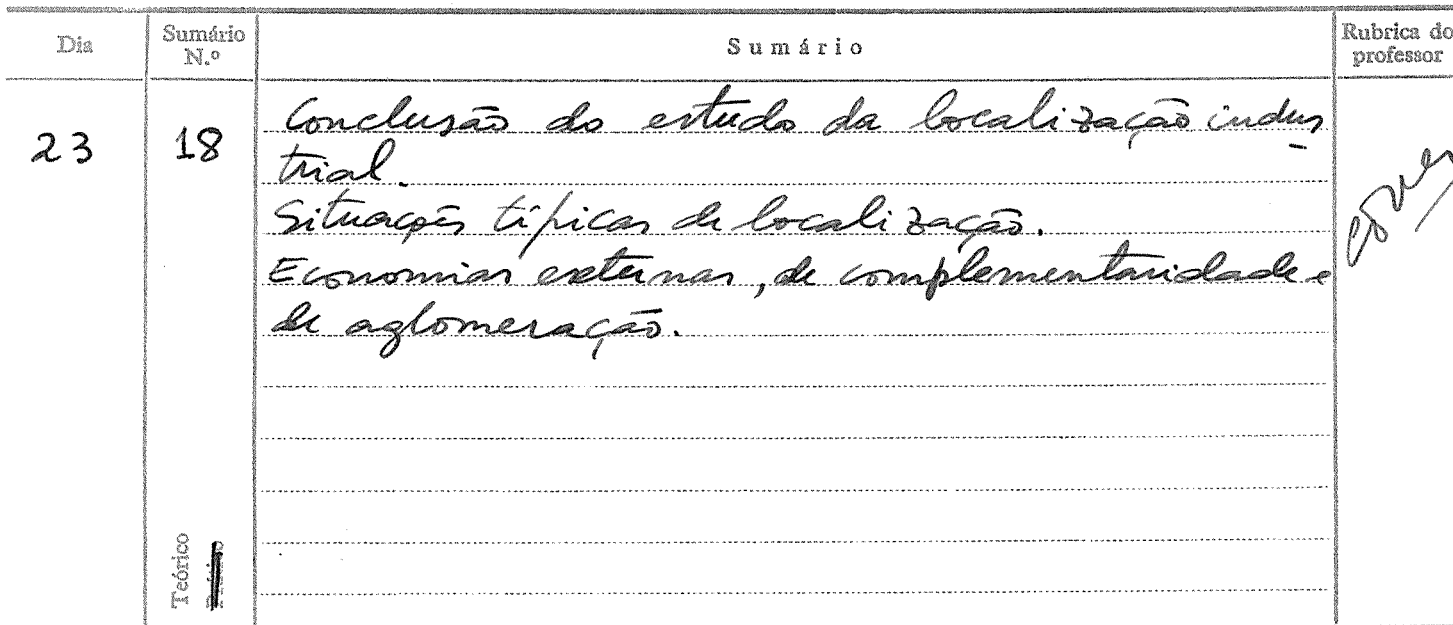 Dia
Sumário
N.º
Sumário
Rubrica do
professor
23
18
Conclusão do estudo da localização indus
trial.
Situações típicas de localização.
Economias externas, de complementaridade e
de aglomeração.
Teórico